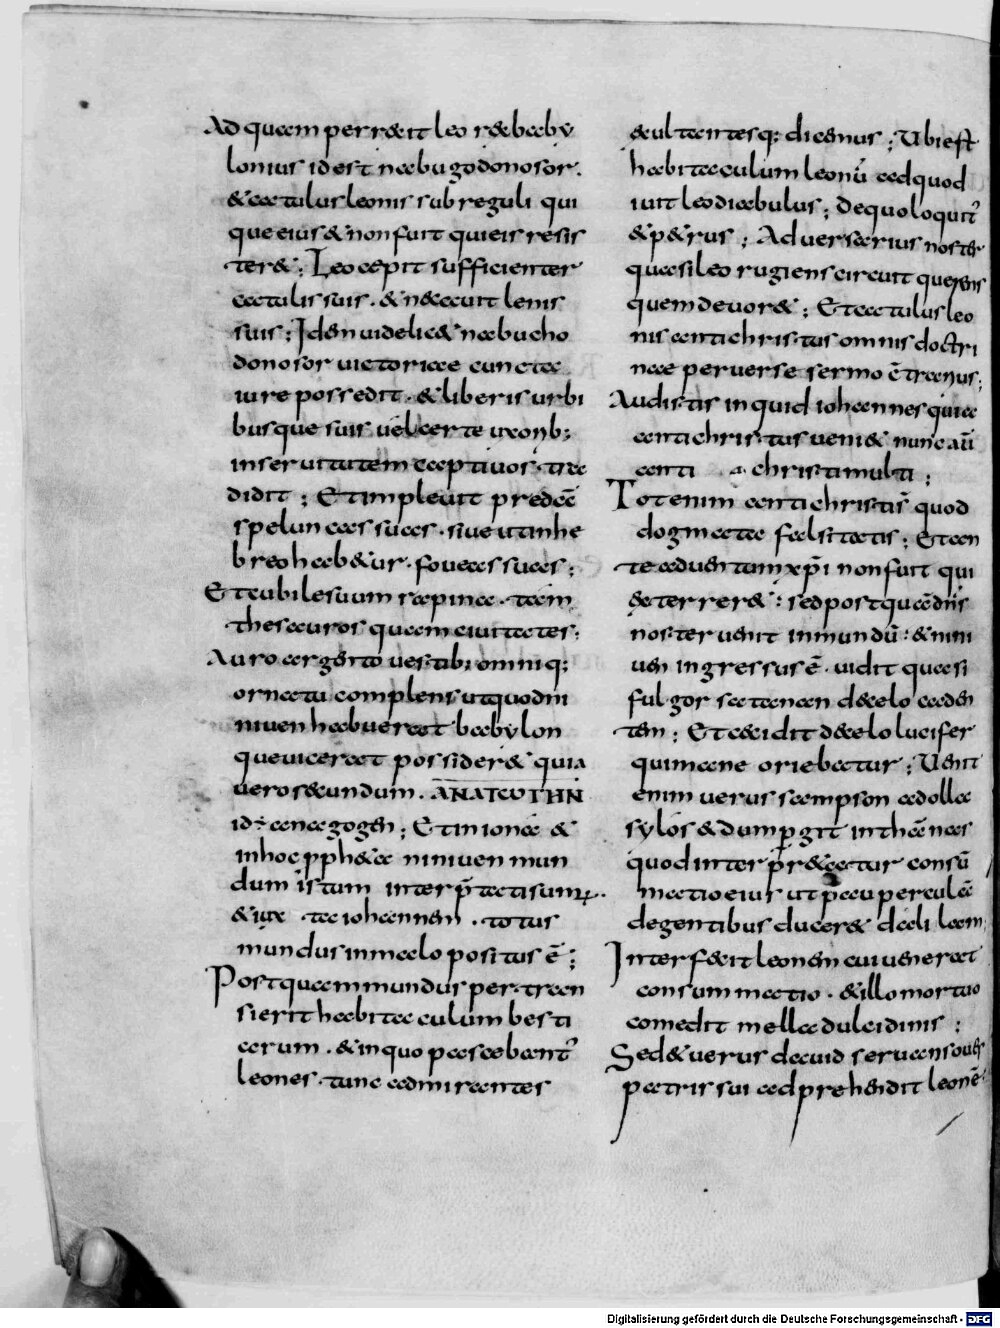 Ad quam perrexit leo rex baby
lonius id est nabugodonosor.
& catulus leonis subreguli qui
que eius & non fuit qui eis resis
ter&; Leo cepit sufficienter
catulis suis. & necauit lenis
suis; Idem uidelic& nabucho
donosor uictoriae cuncta
iure possedit. & liberis urbi
busque suis uel certe uxorib;
in seruitutem captiuos tra
didit; Et impleuit preda
speluncas suas. siue ut in he
breo hab&ur. foueas suas;
Et cubile suum rapina. tam
thesauros quam ciuitates;
Auro argento uestibi omniq;
ornatu complens ut quod ni
niuen habuerat babylon
que uicerat possider& quia
uero secundum. ΑΝΑΓΩΓΗΝ
id ÷ anagogen; Et in iona &
in hoc ppheta niniuen mun
dum istum interp̄tati sum;
& iux ta iohannem. totus
mundus in malo positus ē;
Postquam mundus per tran
sierit habitaculum besti
arum. & in quo pascebant̉
leones. tunc admirantes
exultantesq; dicemus; Ubi est
habitaculum leonū ad quod
iuit leo diabulus; De quo loquit̉
& p&rus; Aduersarius noster
quasi leo rugiens circuit querens
quem deuor&; Et catulus leo
nis antichristus omnis doctri
nae peruerse sermo cōtrarius;
Audistis inquid iohannes quia
antichristus ueni& nunc aūt
anti christi multi;
Tot enim antichristi s̄ quod
dogmata falsitatis; Et an
te aduentum xp̄i non fuit qui
&terrer&: sed postquā dn̄s
noster uenit in mundū: & nini
uen ingressus ē. uidit quasi
fulgor satanan de caelo caden
tem; Et cecidit de caelo lucifer
qui mane oriebatur; Uenit
enim uerus sampson ad alla
sylos & dum pgit in thamnas
quod inter pr&atur consū
matio eius ut p̄ceuperet
degentibus ducer& dalilam
Interfecit leonem cui uenerat
consummatio. & illo mortuo
comedit mella dulcidinis;
Sed & uerus dauid seruans oues
patris sui adprehendit leonē